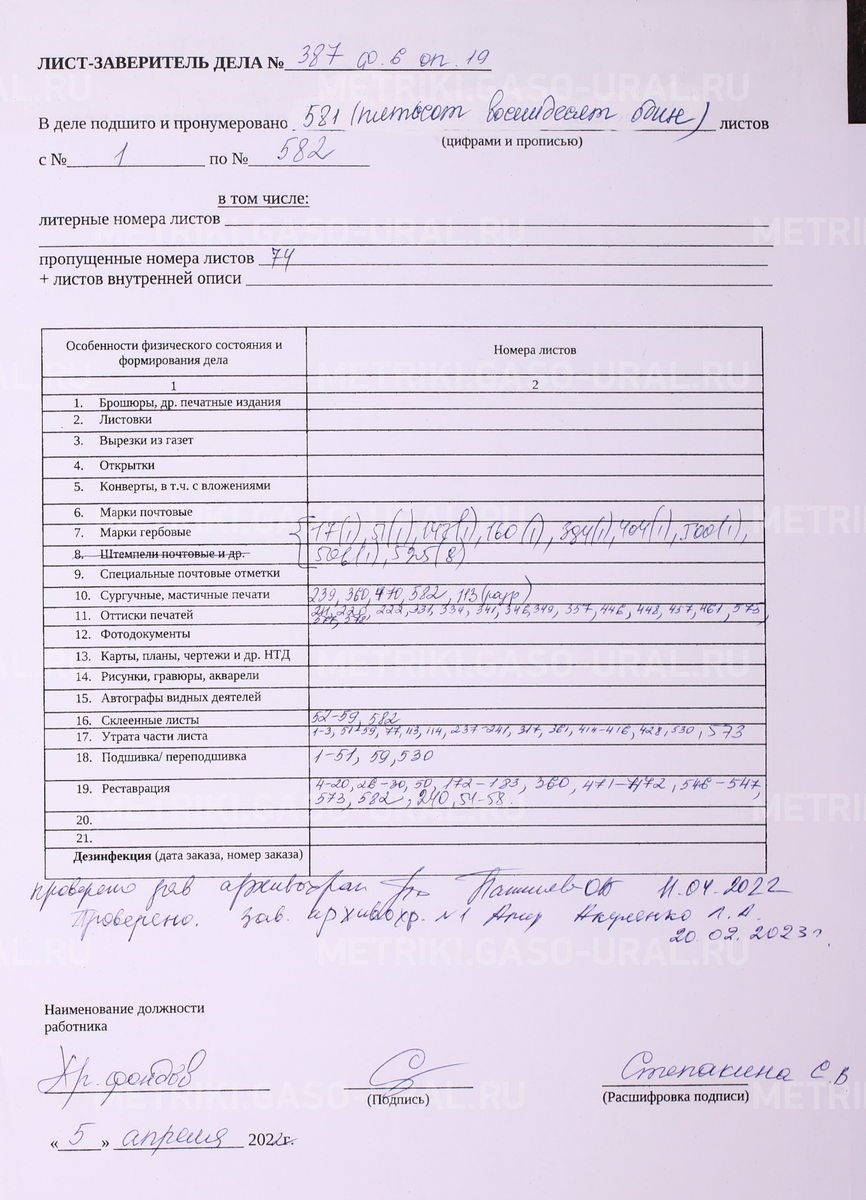 ЛИСТ-ЗАВЕРИТЕЛЬ ДЕЛА № 387 ф. 6 оп. 19
В деле подшито и пронумеровано 581 (пятьсот восемьдесят один) листов
(цифрами и прописью)
с № 1 по № 582
в том числе:
литерные номера листов
пропущенные номера листов 74
+ листов внутренней описи
Особенности физического состояния и формирования дела Номера листов
1 2
1. Брошюры, др. печатные издания
2. Листовки
3. Вырезки из газет
4. Открытки
5. Конверты, в т.ч. с вложениями
6. Марки почтовые
7. Марки гербовые 17(1), 51(1), 147(1), 160(1), 394(1), 404(1), 500(1),
8. Штемпели почтовые и др. 506(1), 525(8)
9. Специальные почтовые отметки
10. Сургучные, мастичные печати 239, 360, 470, 582, 113 (разр)
11. Оттиски печатей 220, 222, 231, 334, 341, 346, 349, 357, 446, 448, 457, 461, 573,
577, 578
12. Фотодокументы
13. Карты, планы, чертежи и др. НТД
14. Рисунки, гравюры, акварели
15. Автографы видных деятелей
16. Склеенные листы 52-59, 582
17. Утрата части листа 1-3, 51-59, 77, 113, 114, 237-241, 317, 361, 414-416, 428, 530, 573
18. Подшивка/ переподшивка 1-51, 59, 530
19. Реставрация 4-20, 26-30, 50, 172-183, 360, 471-472, 546-547,
573, 582, 240, 51-58.
20.
21.
Дезинфекция (дата заказа, номер заказа)
проверено зав архивохран 11.04.2022
Проверено. Зав. архивохр. №1 Акуленко Л.А.
20.02.2023г.
Наименование должности
работника
Хр. фондов Степакина С.В
(Подпись) (Расшифровка подписи)
«5» апреля 2022г.
METRIKI.GASO-URAL.RU